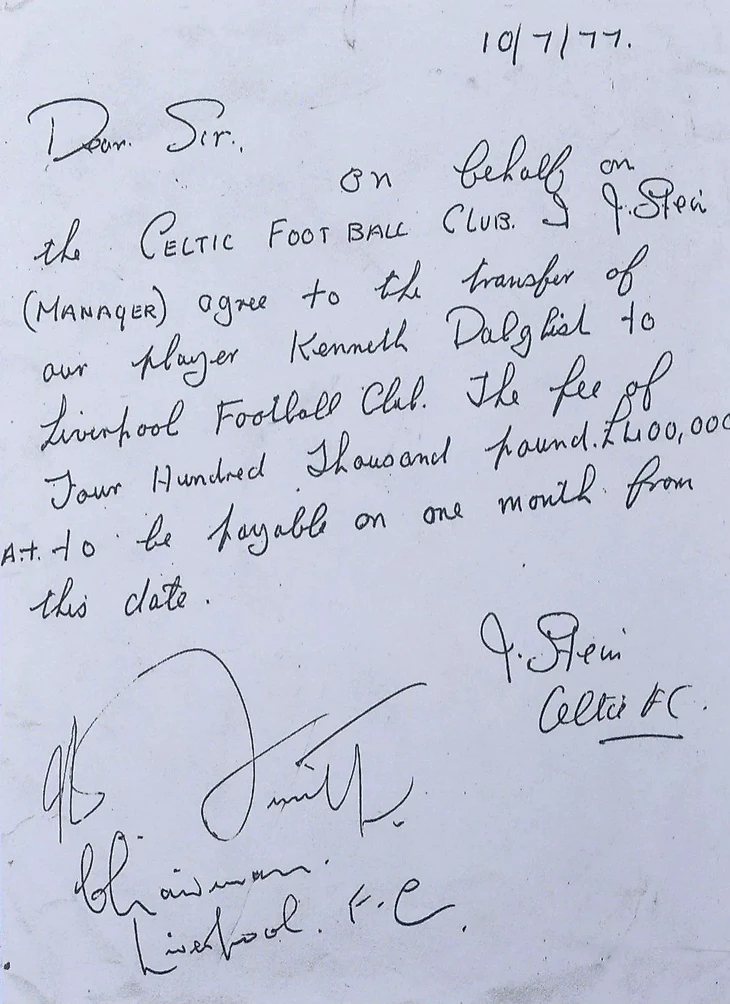 10/7/77.
Dear. Sir.,
on behalf on
the CELTIC FOOTBALL CLUB. I J. Stein
(MANAGER) agree to the transfer of
our player Kenneth Dalglish to
Liverpool Football Club. The fee of
Four Hundred Thousand pound. £400,000
A.t. to be payable on one month from
this date.
J. Stein
Celtic FC.
Smith
Chairman.
Liverpool. F.C.